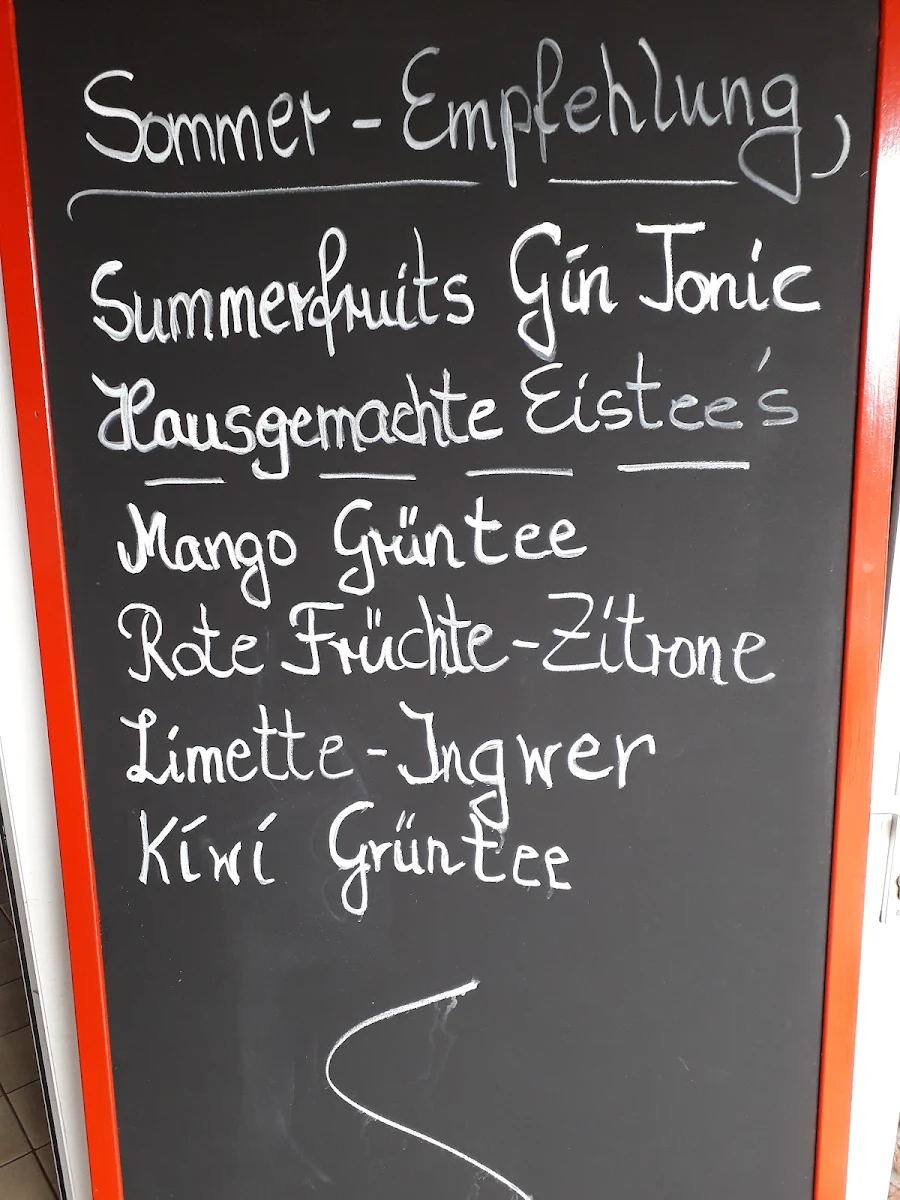 Sommer - Empfehlung
Summerfruits Gin Tonic
Hausgemachte Eistee's
Mango Grüntee
Rote Früchte-Zitrone
Limette-Ingwer
Kiwi Grüntee